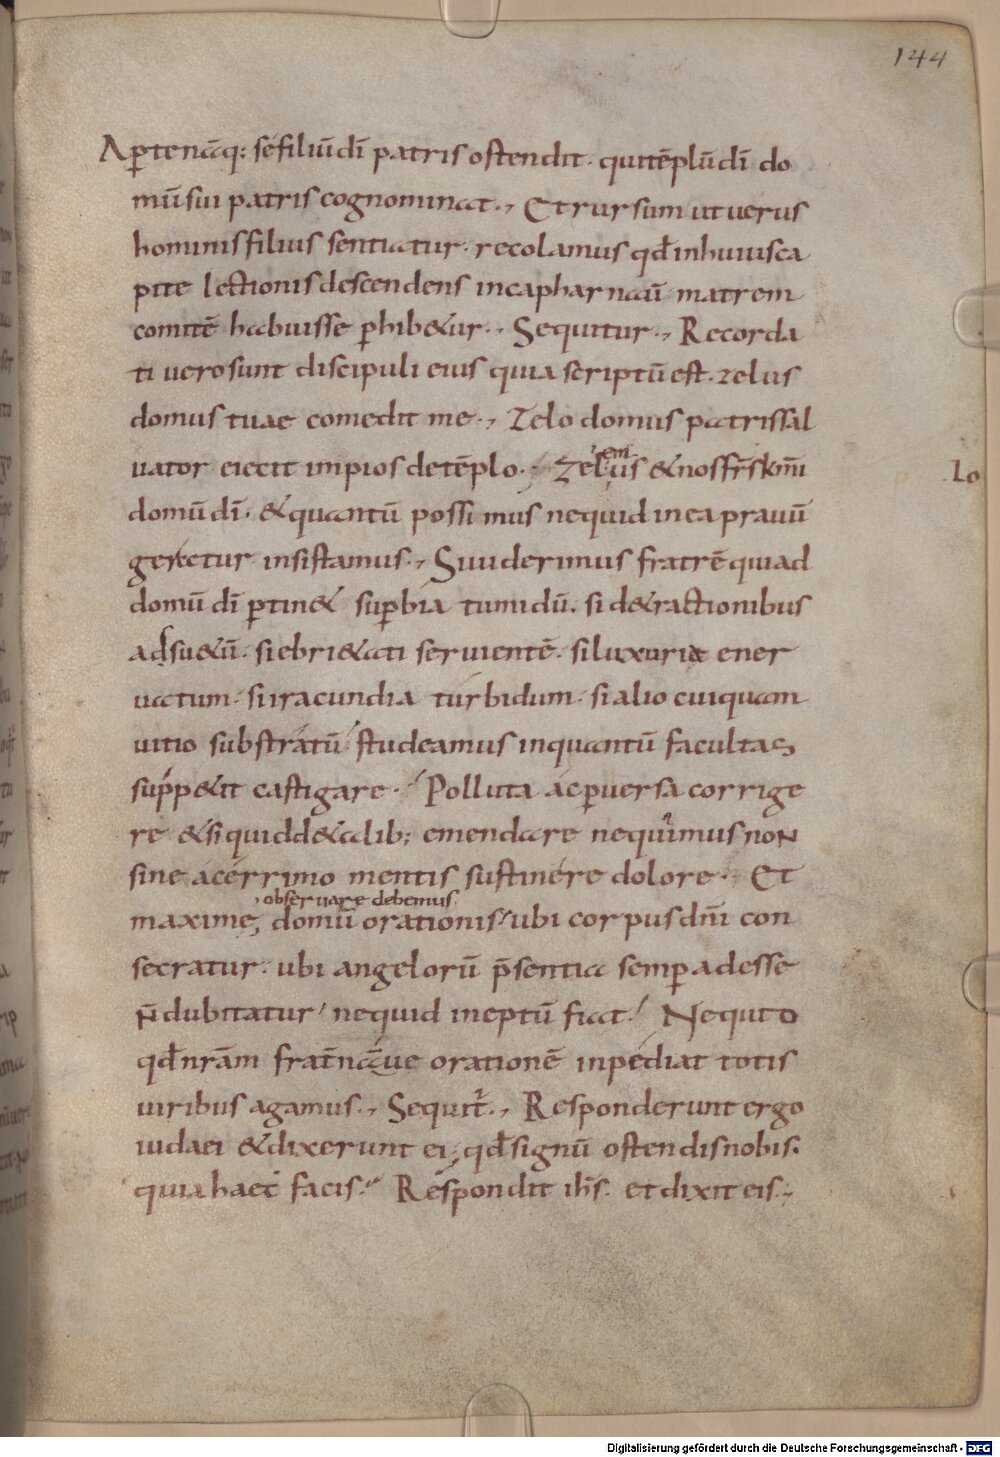 144
Aꝑtenāq: se filiū dī patris ostendit. qui tēplū dī do
mū sui patris cognominat., Et rursum ut uerus
hominis filius sentiatur. recolamus qđ in huius ca
pite lectionis descendens in capharnaū matrem
comitē habuisse ꝑhib&ur., Sequitur., Recorda
ti uero sunt discipuli eius quia scriptū est. zelus
domus tuae comedit me., Zelo domus patris sal
uator eiecit impios de tēplo. Zelus &nos fr̄s km̄i
em
Lo
domū dī. &quantū possimus nequid in ea prauū
geratur insistamus., Si uiderimus fratrē qui ad
domū dī ꝑtin& suꝑbia tumidū. si d&ractionibus
adsu&ū. si ebri&ati seruientē. si luxuriæ ener
uatum. si iracundia turbidum. si alio cuiquam
uitio substratū studeamus inquantū facultas
supp&it castigare. Polluta ac ꝑuersa corrige
re &si quidd&alib; emendare nequiuimus noN
sine acerrimo mentis sustinere dolore. Et
obseruare debemus
maxime, domū orationis ubi corpus dn̄i con
secratur. ubi angelorū p̄sentia semꝑ adesse
n̄ dubitatur nequid ineptū fiat. Nequid
qđ nr̄am frat̄nāue orationē inpediat totis
uiribus agamus., Sequit̄., Responderunt ergo
iudaei &dixerunt ei; qđ signū ostendis nobis.
quia haec facis. Respondit ih̄s. et dixit eis.,
Digitalisierung gefördert durch die Deutsche Forschungsgemeinschaft - DFG